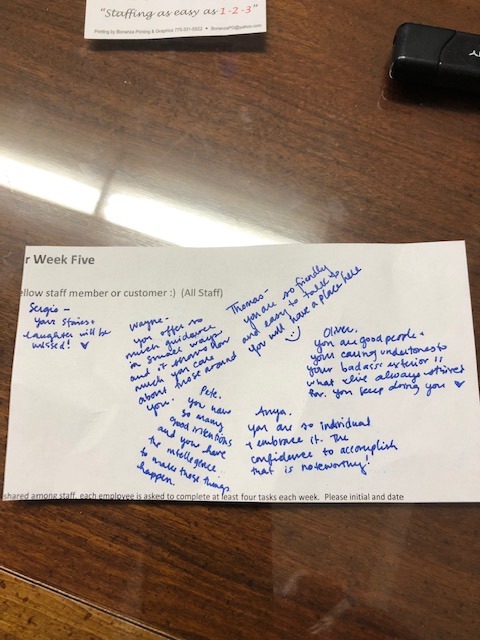 "Staffing as easy as 1-2-3"
Printing by Bonanza Printing & Graphics 775-331-6622 • BonanzaPG@yahoo.com
r Week Five
ellow staff member or customer :) (All Staff)
Sergio -
your stories +
laughter will be
missed! ♥
Wayne -
you offer so
much guidance
in small ways
and it shows how
much you care
about those around
you.
Thomas -
you are so friendly
and easy to talk to
you will have a place here
Oliver,
you are good people +
your caring undertones to
your badass exterior is
what I've always strived
for. You keep doing you ♥
Pete.
you have
so many
good intentions
and you have
the intellegence
to make those things
happen.
Anya.
you are so individual
+ embrace it. The
confidence to accomplish
that is noteworthy!
shared among staff, each employee is asked to complete at least four tasks each week. Please initial and date